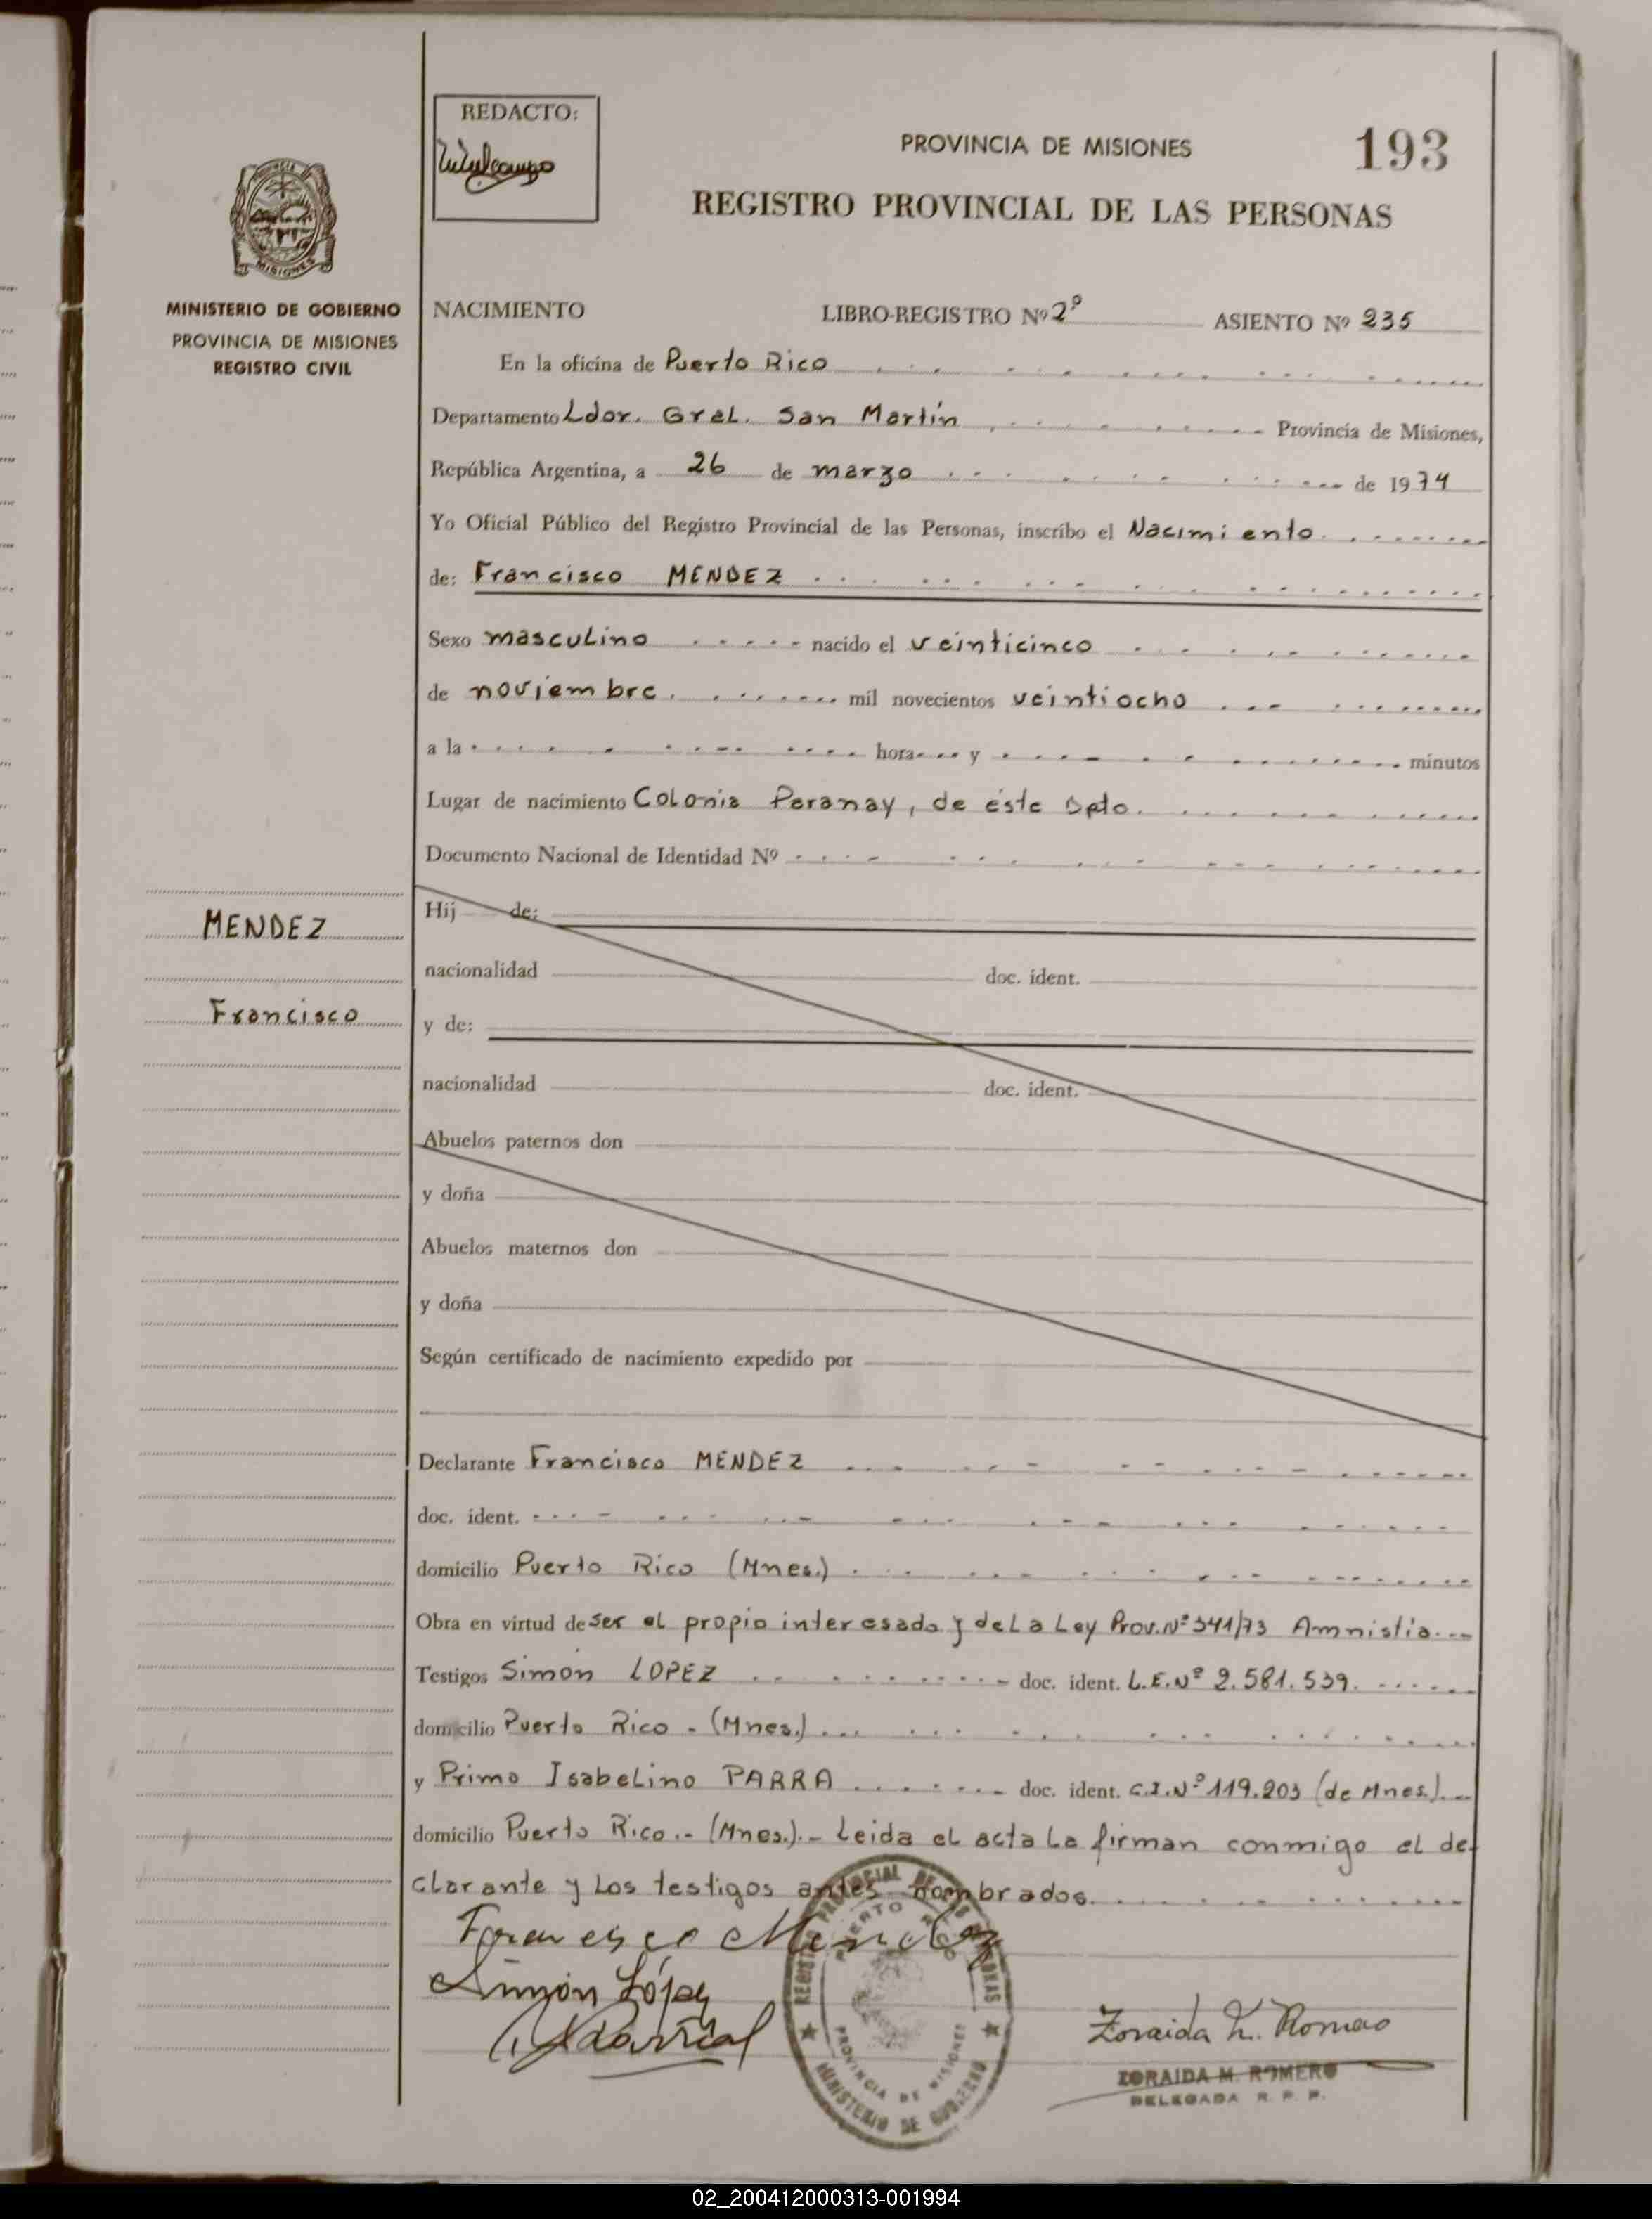 REDACTO:
PROVINCIA DE MISIONES
193
REGISTRO PROVINCIAL DE LAS PERSONAS
MISIONES
MINISTERIO DE GOBIERNO
PROVINCIA DE MISIONES
REGISTRO CIVIL
NACIMIENTO LIBRO-REGISTRO Nº 2º ASIENTO Nº 235
En la oficina de Puerto Rico
Departamento Ldor. Gral. San Martín Provincia de Misiones,
República Argentina, a 26 de marzo de 1974
Yo Oficial Público del Registro Provincial de las Personas, inscribo el Nacimiento
de: Francisco MENDEZ
Sexo masculino nacido el veinticinco
de noviembre mil novecientos veintiocho
a la hora y minutos
Lugar de nacimiento Colonia Paranay, de éste Dpto.
Documento Nacional de Identidad Nº
MENDEZ
Francisco
Hij de:
nacionalidad doc. ident.
y de:
nacionalidad doc. ident.
Abuelos paternos don
y doña
Abuelos maternos don
y doña
Según certificado de nacimiento expedido por
Declarante Francisco MENDEZ
doc. ident.
domicilio Puerto Rico (Mnes.)
Obra en virtud de ser el propio interesado y de La Ley Prov. Nº 341/73 Amnistía
Testigos Simón LOPEZ doc. ident. L.E. Nº 2.581.539.
domicilio Puerto Rico - (Mnes.)
y Primo Isabelino PARRA doc. ident. C.I. Nº 119.203 (de Mnes.)
domicilio Puerto Rico.- (Mnes.).- Leida el acta la firman conmigo el de-
clarante y los testigos antes nombrados.
Francisco Mendez
Simón López
REGISTRO PROVINCIAL DE LAS PERSONAS
PUERTO RICO
PROVINCIA DE MISIONES
MINISTERIO DE GOBIERNO
Zoraida M. Romero
ZORAIDA M. ROMERO
DELEGADA R. P. P.
02_200412000313-001994